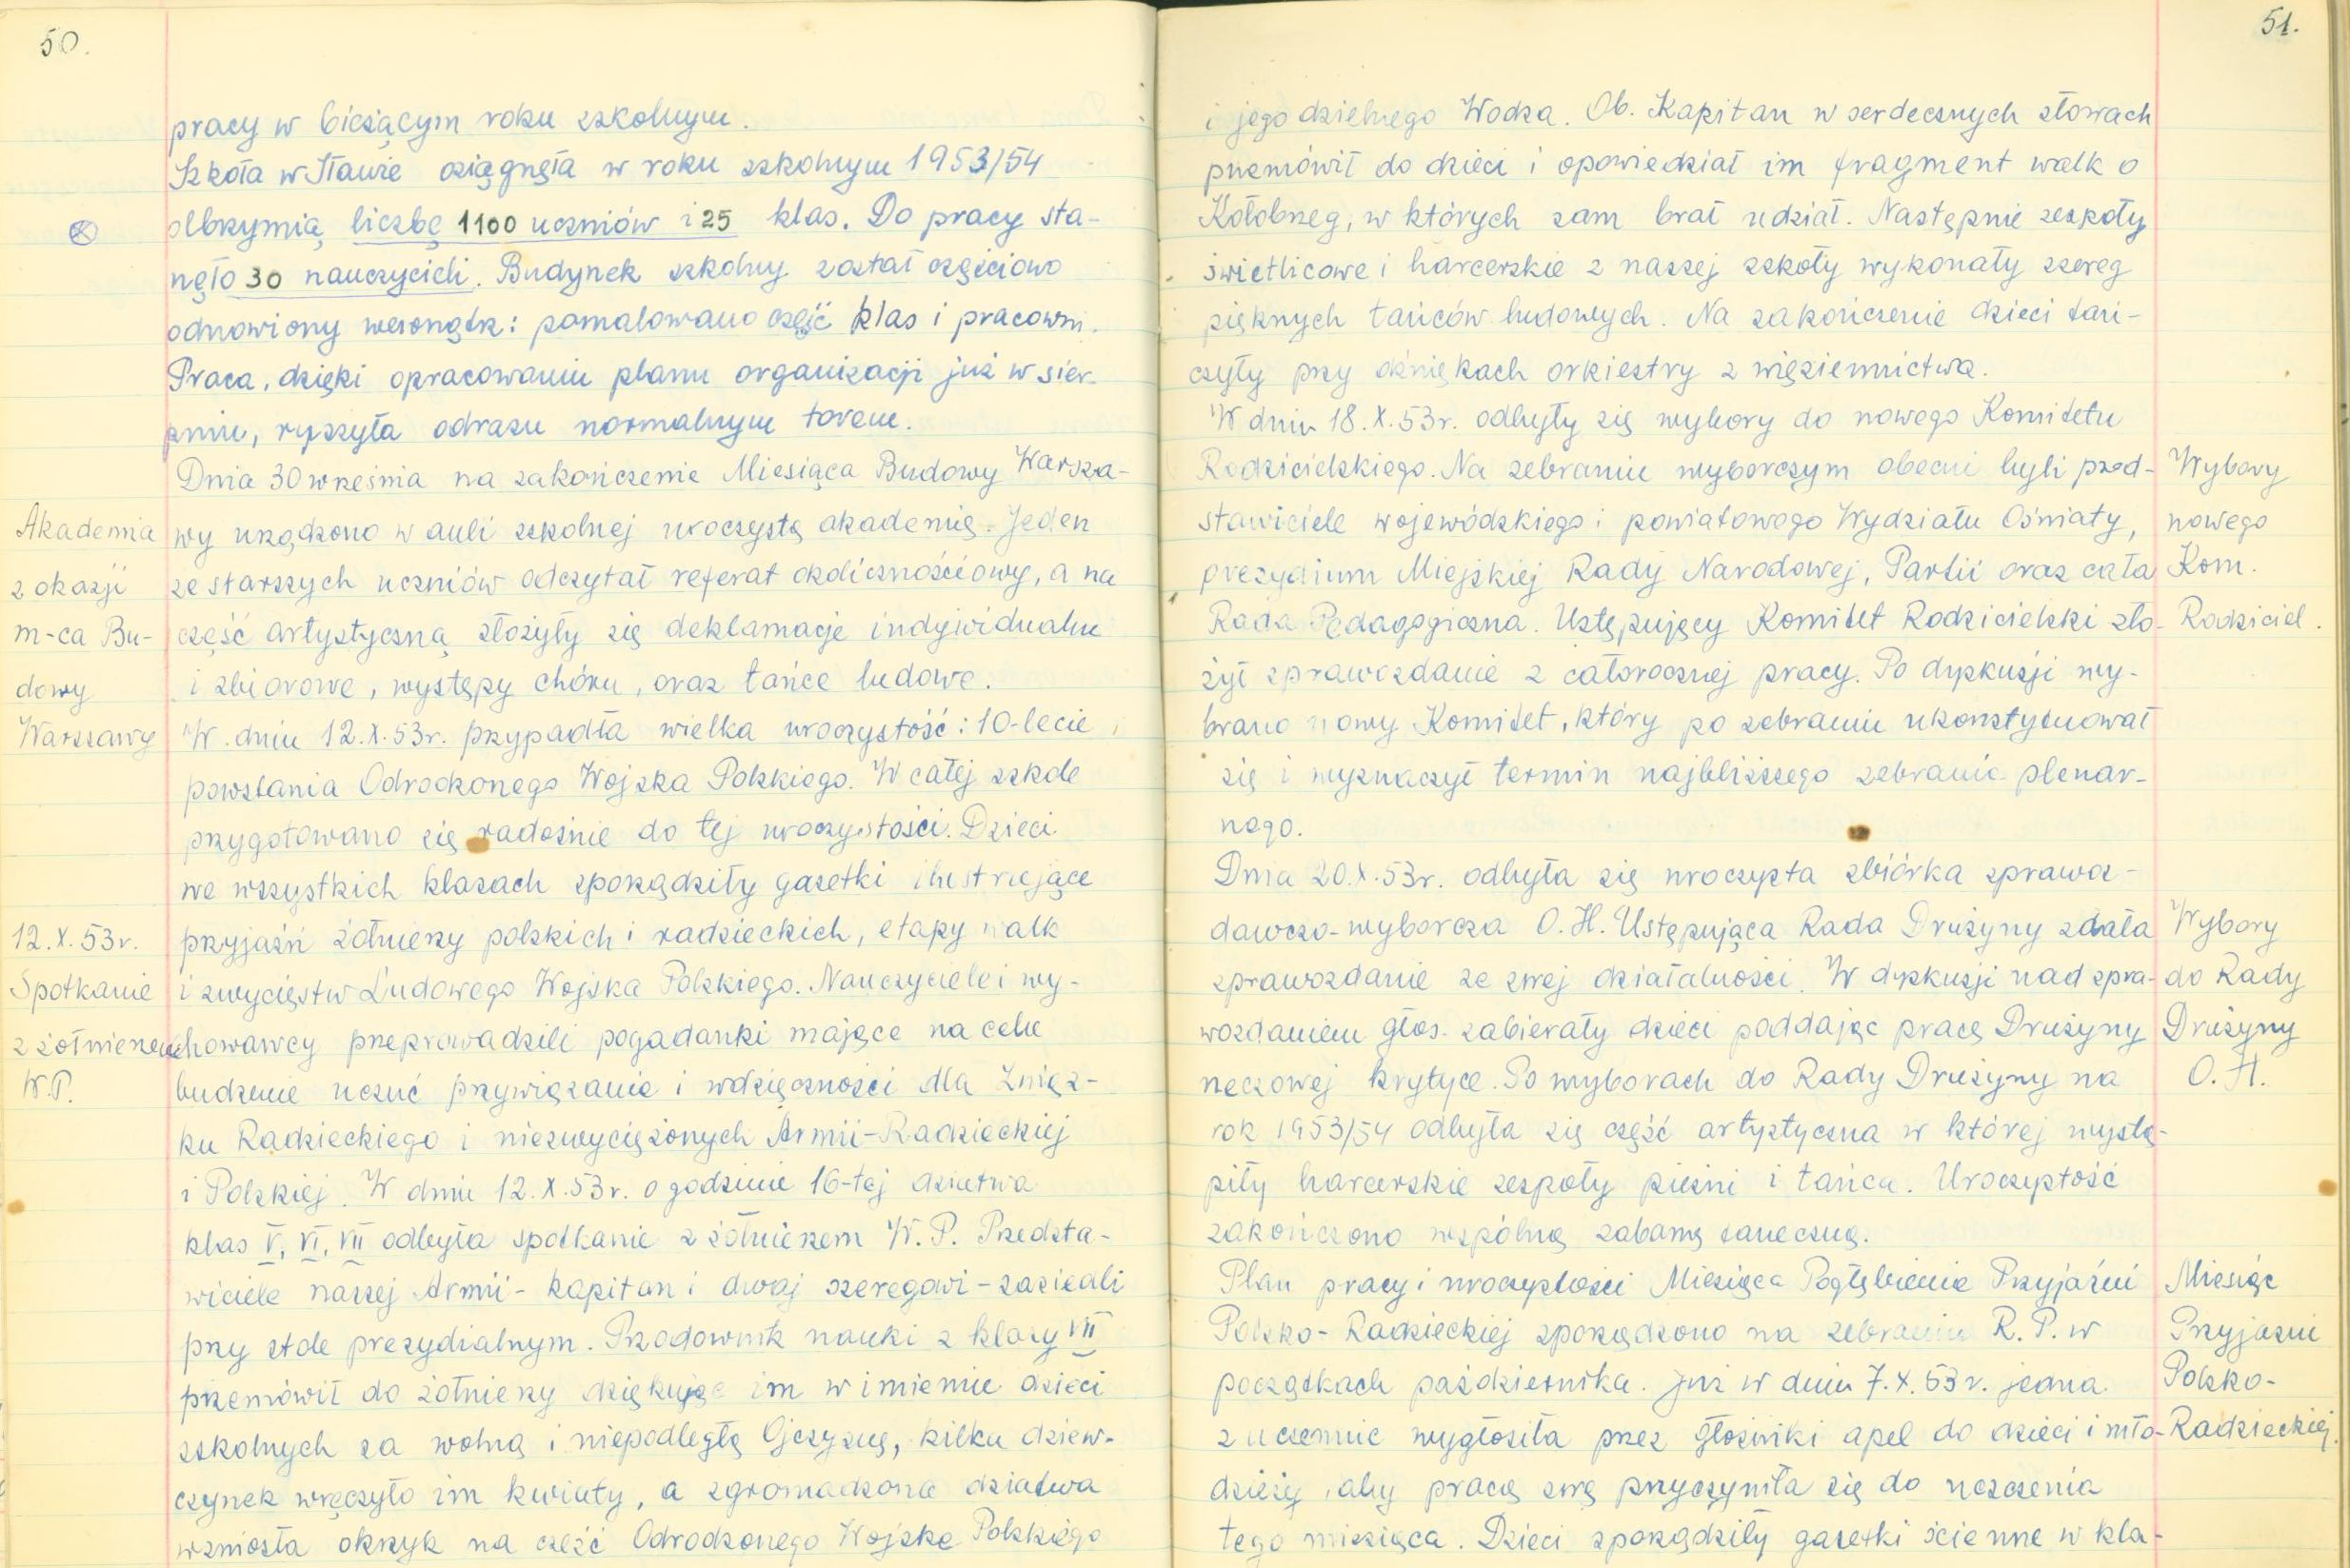 50.
pracy w bieżącym roku szkolnym.
Szkoła w Iławie osiągnęła w roku szkolnym 1953/54
olbrzymią liczbę 1100 uczniów i 25 klas. Do pracy sta-
nęło 30 nauczycieli. Budynek szkolny został częściowo
odnowiony wewnątrz: pomalowano część klas i pracowni.
Praca, dzięki opracowaniu planu organizacji już w sier-
pniu, ryszyła odrazu normalnym torem.
Dnia 30 września na zakończenie Miesiąca Budowy Warsza-
wy urządzono w auli szkolnej uroczystą akademię. Jeden
ze starszych uczniów odczytał referat okolicznościowy, a na
część artystyczną złożyły się deklamacje indywidualne
i zbiorowe, występy chóru, oraz tańce ludowe.
W dniu 12.X.53r. przypadła wielka uroczystość: 10-lecie
powstania Odrodzonego Wojska Polskiego. W całej szkole
przygotowano się radośnie do tej uroczystości. Dzieci
we wszystkich klasach sporządziły gazetki ilustrujące
przyjaźń żołnierzy polskich i radzieckich, etapy walk
i zwycięstw Ludowego Wojska Polskiego. Nauczyciele i wy-
chowawcy przeprowadzili pogadanki mające na celu
budzenie uczuć przywiązania i wdzięczności dla Związ-
ku Radzieckiego i niezwyciężonych Armii-Radzieckiej
i Polskiej. W dniu 12.X.53r. o godzinie 16-tej dziatwa
klas V, VI, VII odbyła spotkanie z żołnierzem W.P. Przedsta-
wiciele naszej Armii - kapitan i dwaj szeregowi - zasiedli
przy stole prezydialnym. Przodownik nauki z klasy VII
przemówił do żołnierzy dziękując im w imieniu dzieci
szkolnych za wolną i niepodległą Ojczyznę, kilku dziew-
czynek wręczyło im kwiaty, a zgromadzona dziatwa
wzniosła okrzyk na cześć Odrodzonego Wojska Polskiego
Akademia
z okazji
m-ca Bu-
dowy
Warszawy
12.X.53r.
Spotkanie
z żołnierzem
W.P.
51.
i jego dzielnego Wodza. Ob. Kapitan w serdecznych słowach
przemówił do dzieci i opowiedział im fragment walk o
Kołobrzeg, w których sam brał udział. Następnie zespoły
świetlicowe i harcerskie z naszej szkoły wykonały szereg
pięknych tańców ludowych. Na zakończenie dzieci tań-
czyły przy dźwiękach orkiestry z więziennictwa.
W dniu 18.X.53r. odbyły się wybory do nowego Komitetu
Rodzicielskiego. Na zebraniu wyborczym obecni byli przed-
stawiciele wojewódzkiego i powiatowego Wydziału Oświaty,
prezydium Miejskiej Rady Narodowej, Partii oraz cała
Rada Pedagogiczna. Ustępujący Komitet Rodzicielski zło-
żył sprawozdanie z całorocznej pracy. Po dyskusji wy-
brano nowy Komitet, który po zebraniu ukonstytuował
się i wyznaczył termin najbliższego zebrania plenar-
nego.
Dnia 20.X.53r. odbyła się uroczysta zbiórka sprawoz-
dawczo-wyborcza O.H. Ustępująca Rada Drużyny zdała
sprawozdanie ze swej działalności. W dyskusji nad spra-
wozdaniem głos zabierały dzieci poddając pracę Drużyny
rzeczowej krytyce. Po wyborach do Rady Drużyny na
rok 1953/54 odbyła się część artystyczna w której wystą-
piły harcerskie zespoły pieśni i tańca. Uroczystość
zakończono wspólną zabawą taneczną.
Plan pracy i uroczystości Miesiąca Pogłębienia Przyjaźni
Polsko-Radzieckiej sporządzono na zebraniu R.P. w
początkach października. Już w dniu 7.X.53r. jedna
z uczennic wygłosiła przez głośniki apel do dzieci i mło-
dzieży, aby pracą swą przyczyniła się do uczczenia
tego miesiąca. Dzieci sporządziły gazetki ścienne w kla-
Wybory
nowego
Kom.
Rodziciel.
Wybory
do Rady
Drużyny
O.H.
Miesiąc
Przyjaźni
Polsko-
Radzieckiej.